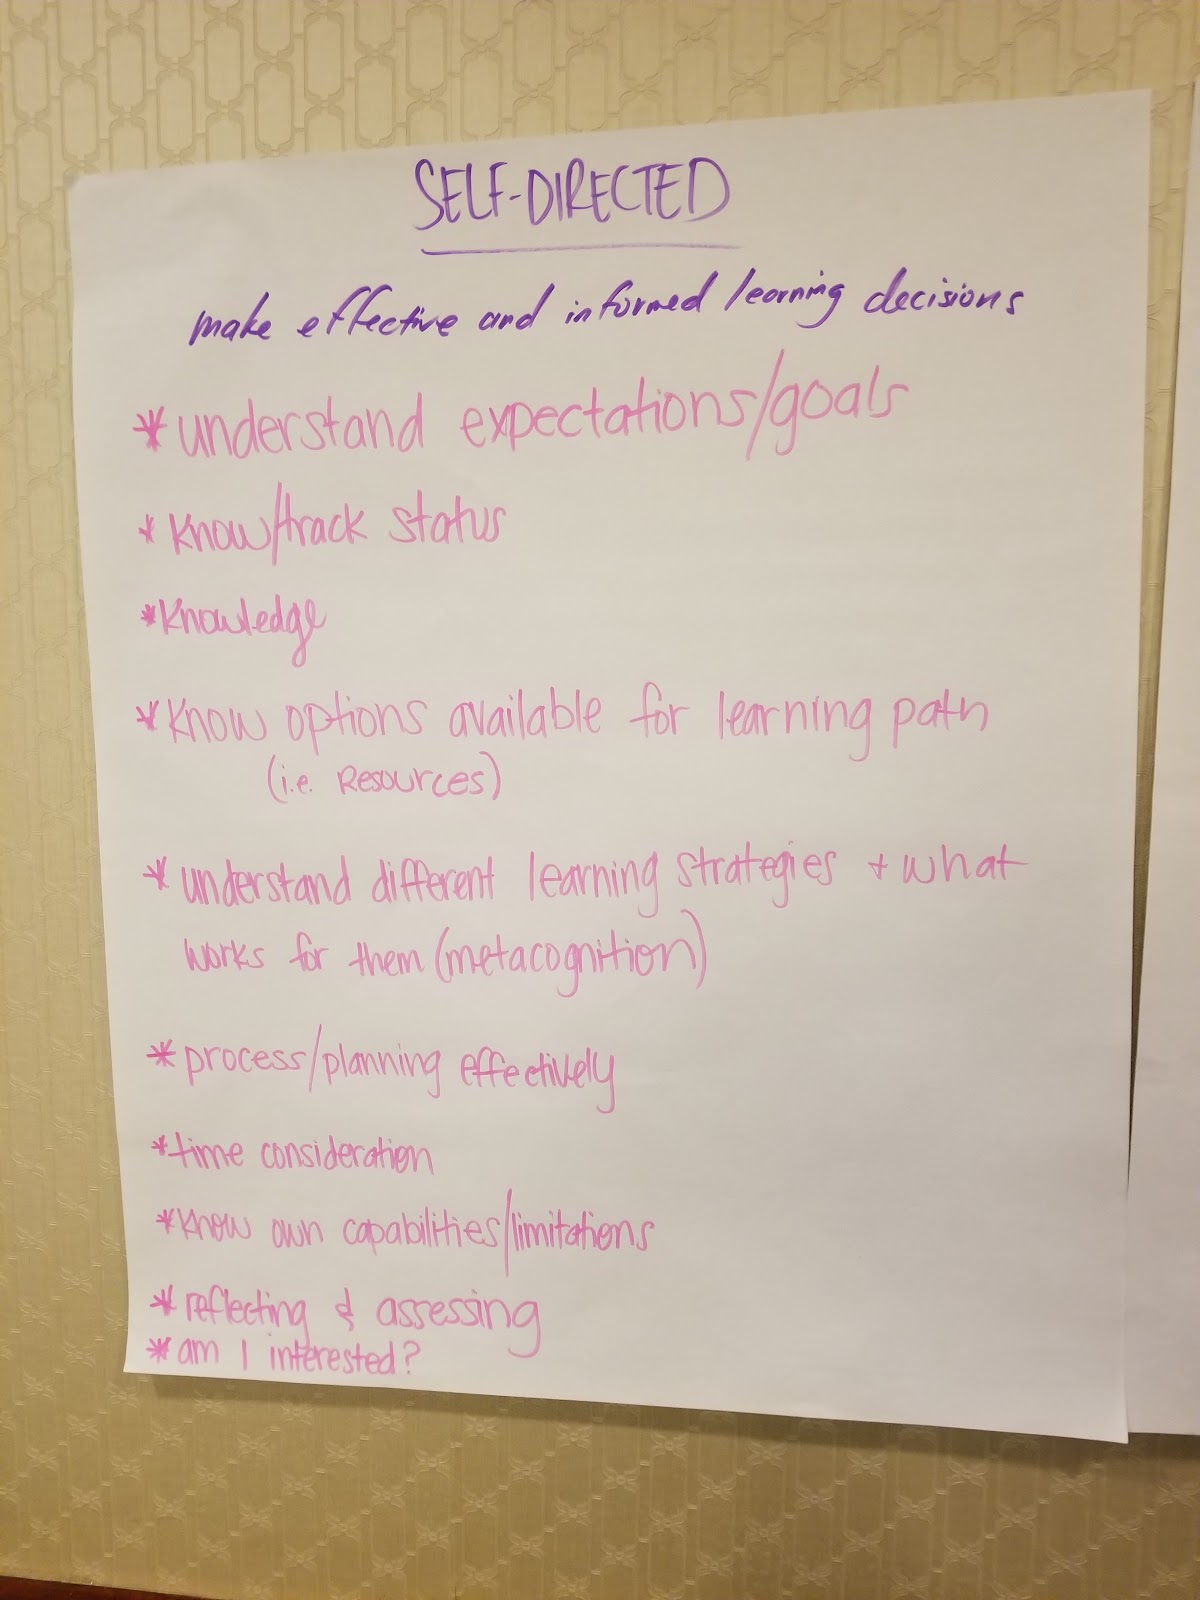 SELF-DIRECTED
make effective and informed learning decisions
* understand expectations/goals
* Know/track status
* Knowledge
* Know options available for learning path
(i.e. Resources)
* understand different learning strategies + what
works for them (metacognition)
* process/planning effectively
* time consideration
* Know own capabilities/limitations
* reflecting & assessing
* am I interested?